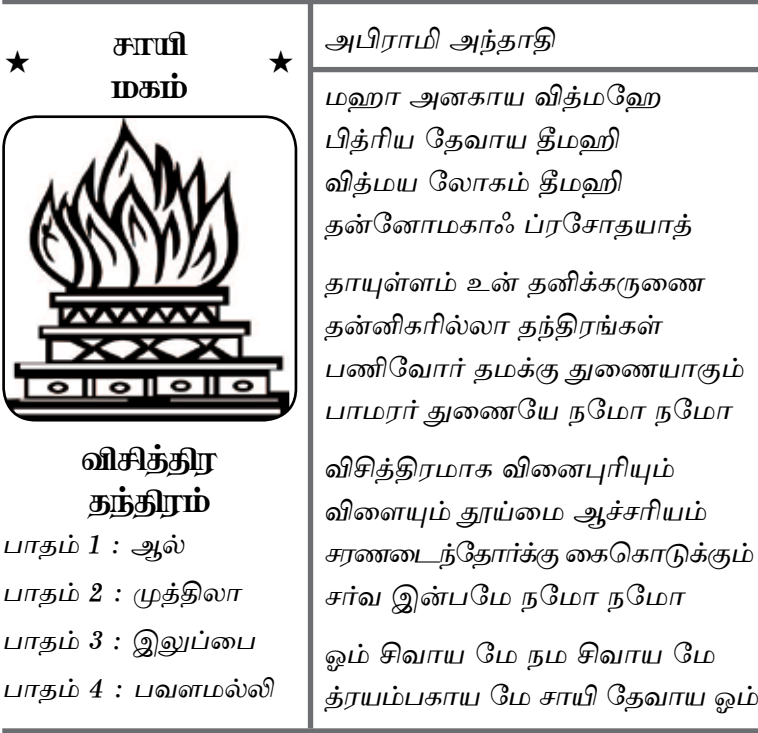 சாயி
மகம்
விசித்திர
தந்திரம்
பாதம் 1 : ஆல்
பாதம் 2 : முத்திலா
பாதம் 3 : இலுப்பை
பாதம் 4 : பவளமல்லி
அபிராமி அந்தாதி
மஹா அனகாய வித்மஹே
பித்ரிய தேவாய தீமஹி
வித்மய லோகம் தீமஹி
தன்னோமகாஃ ப்ரசோதயாத்
தாயுள்ளம் உன் தனிக்கருணை
தன்னிகரில்லா தந்திரங்கள்
பணிவோர் தமக்கு துணையாகும்
பாமரர் துணையே நமோ நமோ
விசித்திரமாக வினைபுரியும்
விளையும் தூய்மை ஆச்சரியம்
சரணடைந்தோர்க்கு கைகொடுக்கும்
சர்வ இன்பமே நமோ நமோ
ஓம் சிவாய மே நம சிவாய மே
த்ரயம்பகாய மே சாயி தேவாய ஓம்